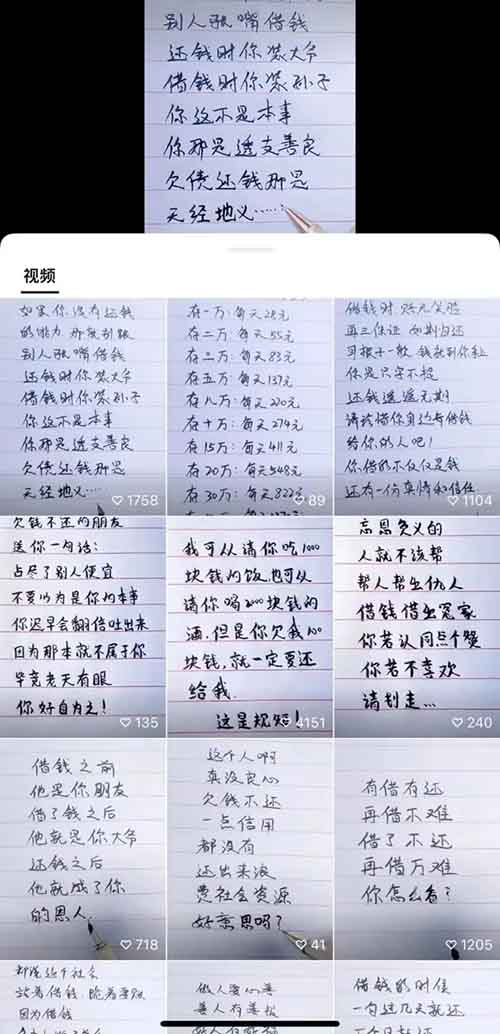 别人张嘴借钱
还钱时你装大爷
借钱时你装孙子
你这不是本事
你那是透支善良
欠债还钱那是
天经地义……
视频
如果你没有还钱
的能力 那就别跟
别人张嘴借钱
还钱时你装大爷
借钱时你装孙子
你这不是本事
你那是透支善良
欠债还钱那是
天经地义……
1758
存一万：每天28元
存二万：每天55元
存三万：每天83元
存五万：每天137元
存八万：每天220元
存十万：每天274元
存15万：每天411元
存20万：每天548元
存30万：每天822元
89
借钱时 赔尽笑脸
再三保证 如期归还
可换于一般 钱就到你账
你是只字不提
还钱遥遥无期
请珍惜你身边有借钱
给你的人吧！
你借的不仅仅是钱
还有一份真情和信任
1104
欠钱不还的朋友
送你一句话：
占尽了别人便宜
不要以为是你的本事
你迟早会翻倍吐出来
因为那本就不属于你
毕竟老天有眼
你好自为之！
135
我可以请你吃1000
块钱的饭，也可以
请你喝2000块钱的
酒，但是你欠我100
块钱，就一定要还
给我.
这是规矩！
4151
忘恩负义的
人就不该帮
帮人帮出仇人
借钱借出冤家
你若认同点个赞
你若不喜欢
请划走…
240
借钱之前
他是你朋友
借了钱之后
他就是你大爷
还钱之后
他就成了你
的恩人.
718
这个人啊
真没良心
欠钱不还
一点信用
都没有
还出来浪
费社会资源
好意思吗？
41
有借有还
再借不难
借了不还
再借万难
你怎么看？
1205
却是这个社会
站着借钱，跪着要账
因为借钱
做人要心善
善人有善报
借钱的时候
一句过几天就还